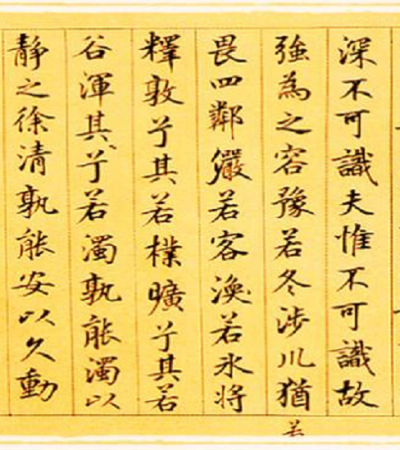 深不可識夫惟不可識故
強為之容豫若冬涉川猶若
畏四鄰儼若客渙若氷將
釋敦兮其若樸曠兮其若
谷渾其兮若濁孰能濁以
靜之徐清孰能安以久動